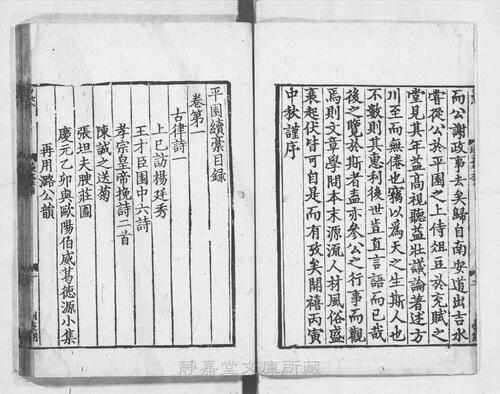 而公謝政事去矣歸自南安道出吉水
甞從公於平園之上侍俎豆於充賦之
堂見其年益高視聽益壯議論著述方
川至而無倦也竊以爲天之生斯人也
不數則其惠利後世豈直言語而已哉
後之覽於斯者盍亦參公之行事而觀
焉則文章學問本末源流人材風俗盛
衰起伏皆可自是而有攷矣開禧丙寅
中秋謹序
平園續藁目録
卷第一
古律詩一
上巳訪楊廷秀
王才臣園中六詩
孝宗皇帝挽詩二首
陳誠之送菊
張坦夫腴莊圖
慶元乙卯與歐陽伯威葛德源小集
再用潞公韻
靜嘉堂文庫所藏